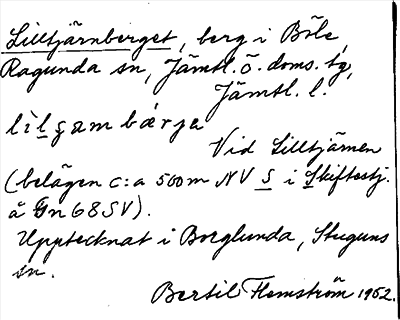 Lilltjärnberget, berg i Böle,
Ragunda sn, Jämtl. ö. doms. tg,
Jämtl. l.
Vid Lilltjärnen
(belägen c:a 500m NV S i Skiftestj.
å Gn 68 SV).
Upptecknat i Borglunda, Stuguns
sn.
Bertil Flemström 1952.